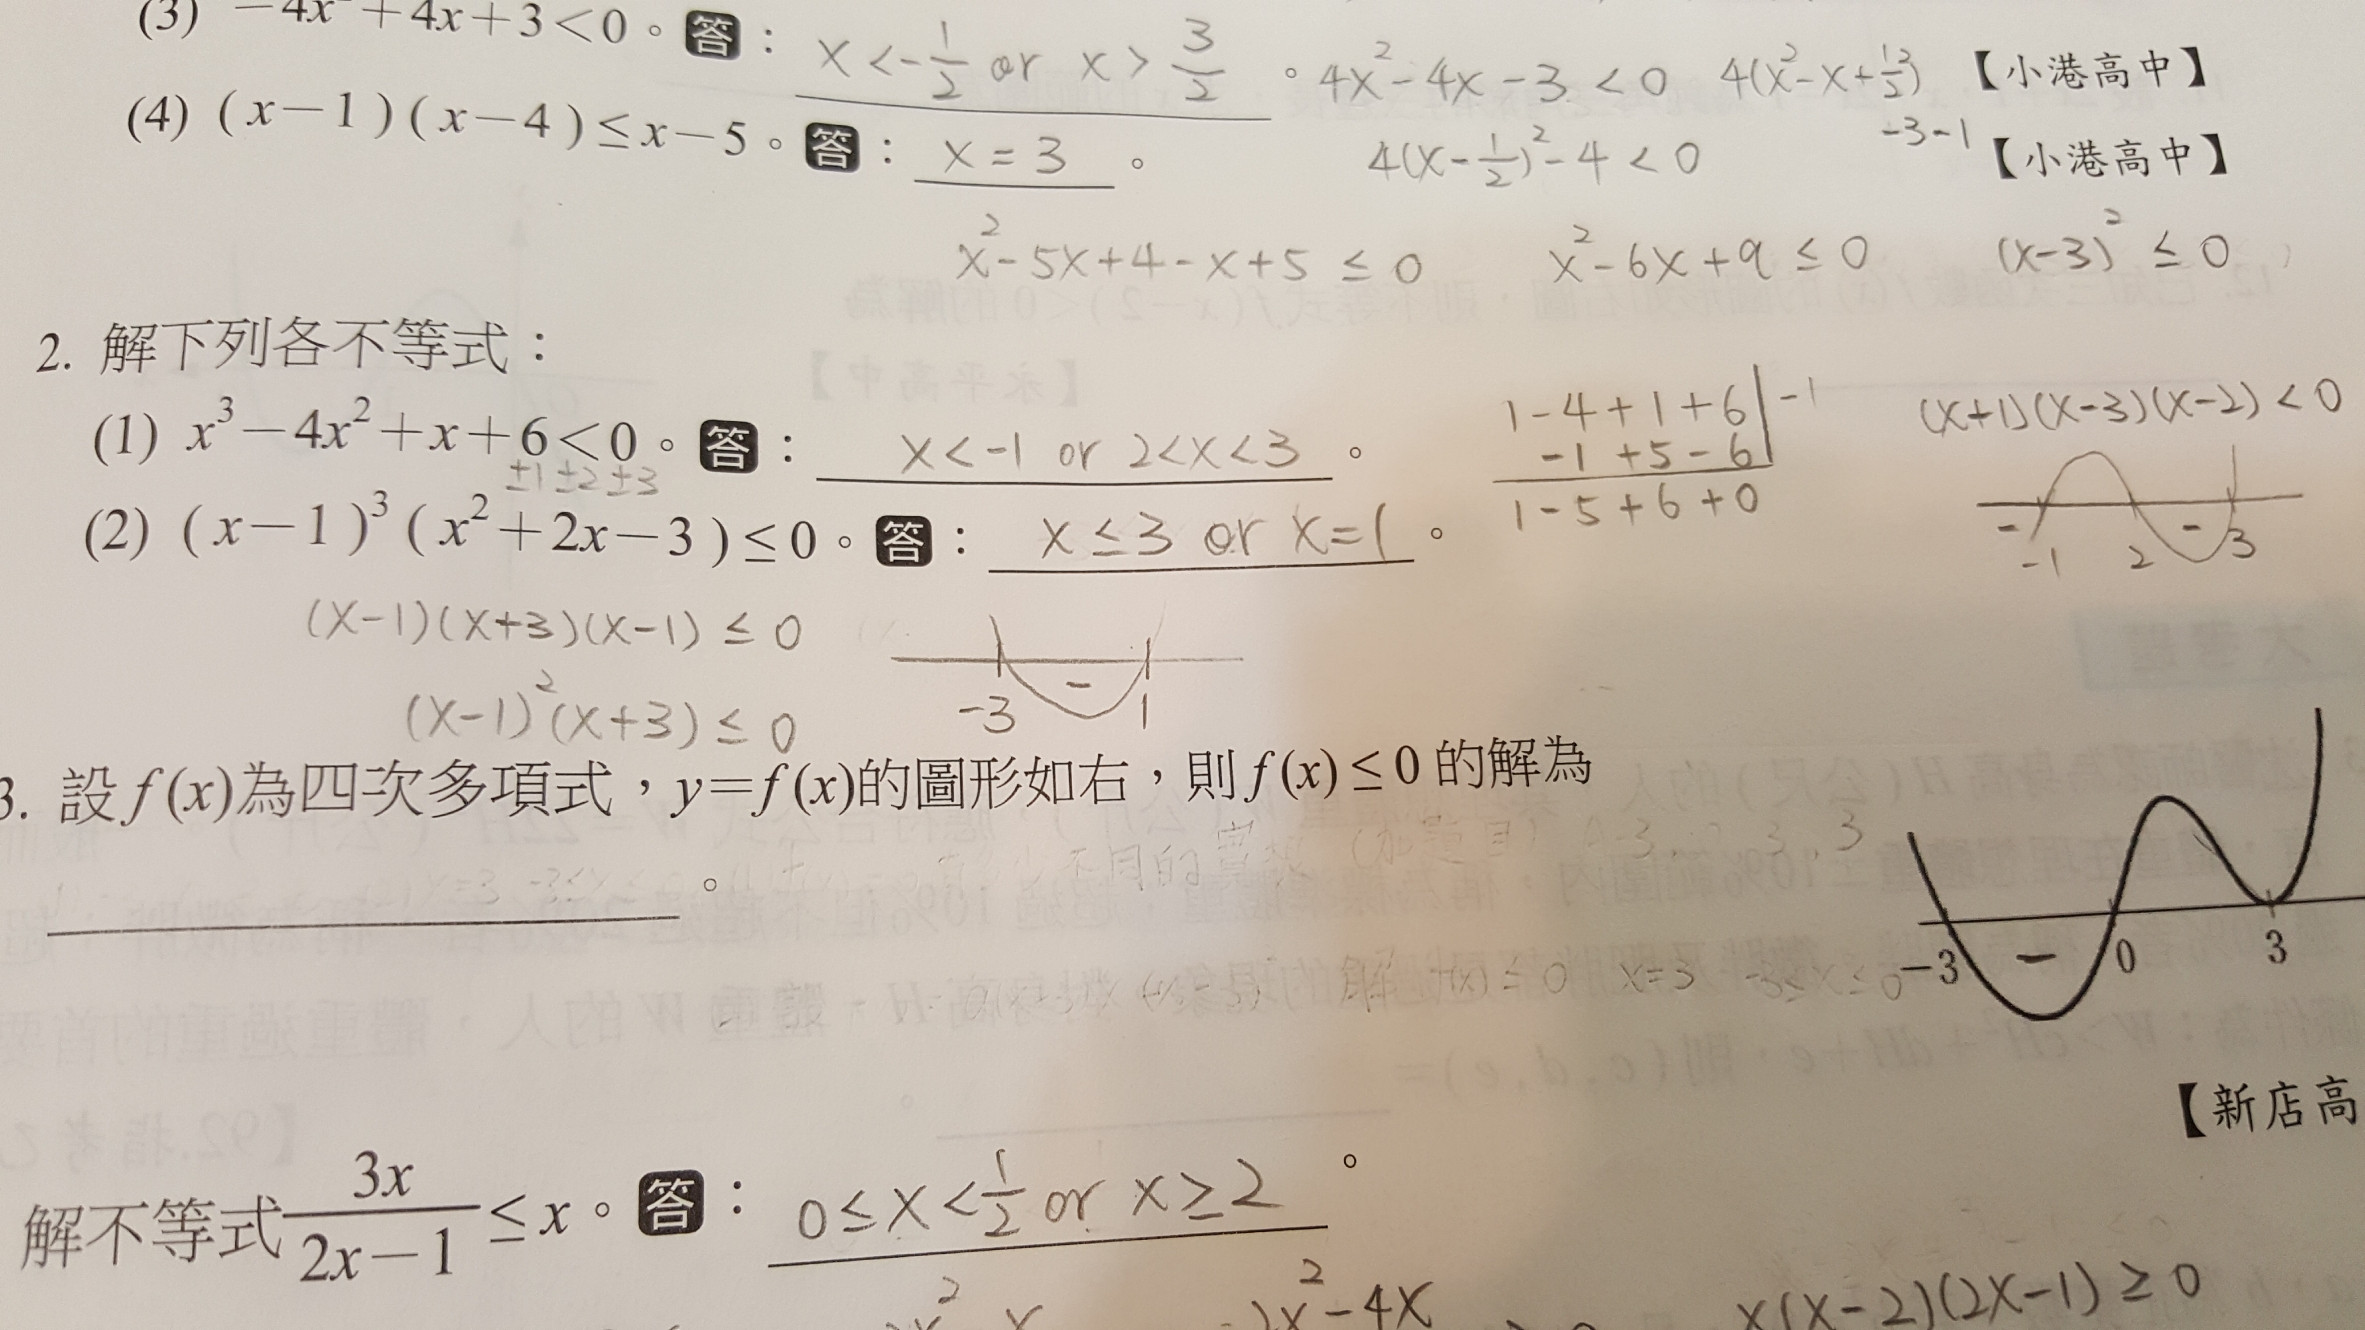 (3) −4x²+4x+3<0。答：x<-1/2 or x>3/2。4x²-4x-3<0 4(x²-x+(1/2)²) 【小港高中】
-3-1
(4) (x−1)(x−4)≤x−5。答：x=3。4(x-1/2)²-4<0 【小港高中】
x²-5x+4-x+5≤0 x²-6x+9≤0 (x-3)²≤0
2. 解下列各不等式：
(1) x³−4x²+x+6<0。答：x<-1 or 2<x<3。
±1 ±2 ±3
1-4+1+6 -1
-1+5-6
1-5+6+0
(x+1)(x-3)(x-2)<0
- -
-1 2 3
(2) (x−1)³(x²+2x−3)≤0。答：x≤3 or x=1。
(x-1)(x+3)(x-1)≤0
(x-1)²(x+3)≤0
-
-3 1
3. 設f(x)為四次多項式，y=f(x)的圖形如右，則f(x)≤0的解為
。
-3 − 0 3
x=3 -3≤x≤0
【新店高
解不等式3x/(2x−1)≤x。答：0≤x<1/2 or x≥2。
x(x-2)(2x-1)≥0